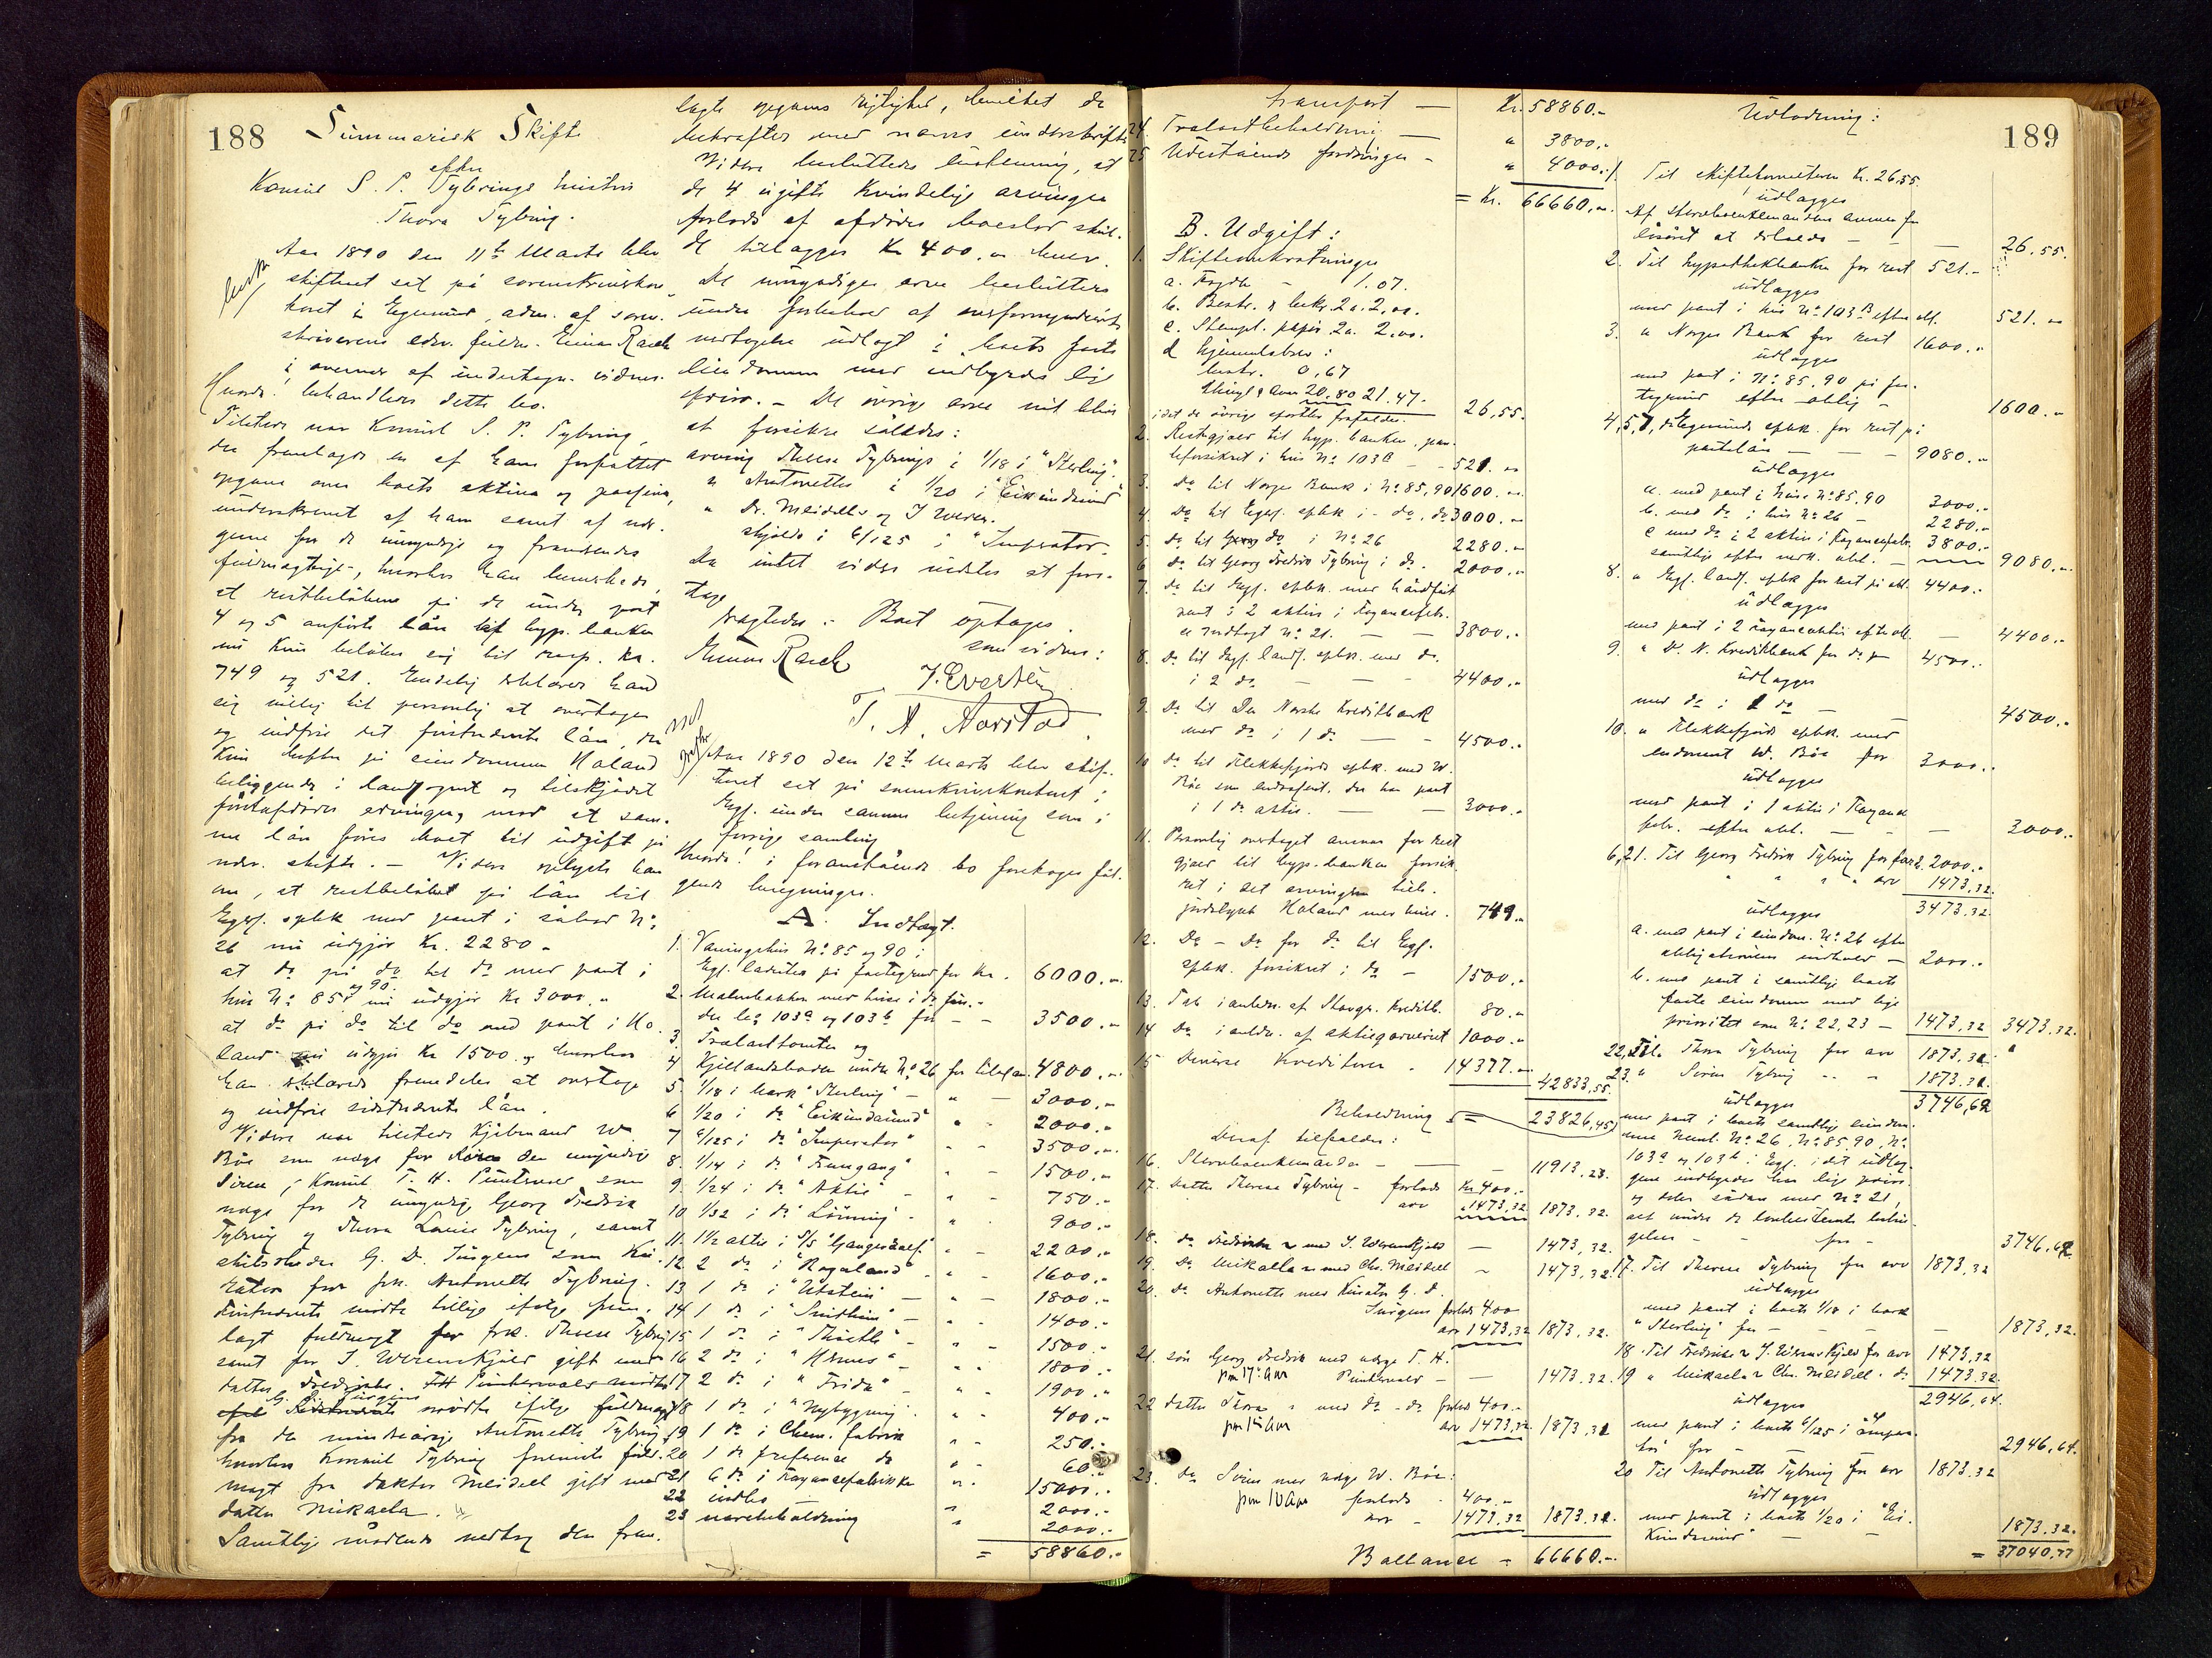 188
Summarisk Skifte
efter
Konsul S. P. Tybrings hustru
Thora Tybring.
Aar 1890 den 11te Marts blev
skifteret sat på sorenskriverkon-
toret i Egersund, adm. af soren-
skriverens edsv. fuldm. Einar Rasch
i overvær af undertegn. vidner.
Hvorda: behandledes dette bo.
Tilstede var Konsul S. P. Tybring,
der fremlagde en af ham forfattet
opgave over boets aktiva og passiva,
underskrevet af ham samt af vær-
gerne for de umyndige og fremlendes
fuldmægtige, hvorhos han bemærkede,
at restbeløbene på de under post
4 og 5 anførte lån til hyp. banken
nu kun beløber sig til resp. kr.
749 og 521. Endelig erklærede han
sig villig til personlig at overtage
og indfrie det førstnævnte lån, der
kun hefter på eiendommen Haland
beliggende i landsognet og tilskjødet
førstafdødes arvinger, mod at sam-
me lån føres boet til udgift på
nærv. skifte. – Videre oplyste han
om, at restbeløbet på lån til
Egers. spbk med pant i søbod No
26 nu udgjør Kr. 2280 –
at do på do til do med pant i
hus No 85 og 90 nu udgjør Kr 3000.„
at do på do til do med pant i Ha-
land nu udgjør Kr 1500.„ hvorhos
han erklærede fremdeles at overtage
og indfrie sidstnævnte lån.
Videre var tilstede Kjøbmand W.
Böe som værge for den umyndige
Siren, Konsul T. H. Puntervold som
værge for de umyndige Georg Fredrik
Tybring og Thora Louise Tybring, samt
skibsreder G. D. Jürgens som Ku-
rator for frk. Antonette Tybring.
Førstnævnte mødte tillige ifølge frem-
lagt fuldmagt for frk. Therese Tybring
samt for J. Werenskjold gift med
datter Fredrikke. TH Puntervold mødte
G. D. Jürgens
mødte ifølge fuldmagt
fra den mindreårige Antonette Tybring,
hvorhos Konsul Tybring fremviste fuld-
magt fra doktor Meidell gift med
datter Mikaela.
Samtlige mødende vedtog den frem-
lagte opgaves rigtighed, hvilket de
bekræfter med navns underskrift.
Videre besluttedes enstemmig, at
de 4 ugifte kvindelige arvinger
forlods af afdødes boeslod skul-
de tillægges Kr 400.„ hver.
De umyndiges arve besluttedes
under forbehold af overformynderiets
vedtagelse udlagt i boets faste
eiendomme med indbyrdes lige
prior. – De øvrige arve vil blive
at forsikre således:
arving Therese Tybrings i 1/18 i "Sterling"
" Antonettes i 1/20 i "Eikundsund"
" Dr. Meidells og J Weren-
skjolds i 6/125 i "Imperator".
Da intet videre vidstes at fore-
tage
vragtedes: Boet optages.
Einar Rasch som vidner:
J. Evertsen
T. A. Aarstad
Aar 1890 den 12te Marts blev skif-
teret sat på sorenskriverkontoret i
Egs. under samme betjening som i
forrige samling
Hvorda: i foranstående bo foretoges føl-
gende beregninger.
A. Indtægt.
1. Vaningshus No 85 og 90 i
Egs. ladested på fæstegrund for Kr. 6000.„
2. Malmbakken med huse i do søn-
der lb. 103a og 103b for – – 3500.„
3. Trælasttomter og
4 Kjellandsboden under No 26 for tilsam. 4800.„
5. 1/18 i bark "Sterling" – „ – 3000.„
6 1/20 i do "Eikundsund" „ „ 2000.„
7 6/125 i do "Imperator" „ „ 3500.„
8. 1/14 i do "Fremgang" „ „ 1500.„
9. 1/24 i do "Aktiv" – „ „ 750.–
10 1/32 i do "Lønning" – „ „ 900.–
11. 1 1/2 aktie i S/S "Gangerolf" „ – 2200.„
12. 2 do i "Rogaland" „ „ 1600.–
13 1 do i "Utstein" – „ – 1800.–
14 1 do i "Smithsn" – „ – 1400.–
15 1 do i "Thistle" – „ – 1500.–
16 2 do i "Hermes" – „ „ 1800.–
17 2 do i "Frida" – „ „ 1900.„
18 1 do i "Nybygning" – „ „ 400.–
19 1 do i Chem. fabrik „ „ 250.–
20 1 do preference do „ „ 60.„
21 6 do i Fayancefabrikken „ „ 15000.„
22 indbo „ 2000.–
23 varebeholdning „ 2000.–
= 58860.„
189
Transport – Kr. 58860.–
24. Trælastbeholdning – „ 3800.„
25 Udestående fordringer – „ 4000.„
= Kr. 66660.„
B. Udgift:
1. Skifteomkostninger
a. Fogde – 1.07.
b. Besk. & bekj. 2a. 2.00.
c. Stempl. papir 2a. 2.00.
d hjemmelsbrev:
beskr. 0,67
thingl & bev 20.80 21.47. 26,55.
idet de øvrige sportler frafaldes.
2. Restgjæld til hyp. banken, pan-
teforsikret i hus No 103B – – 521.„
3. do til Norges Bank i No 85,90 1600.„
4. Do til Egers. spbk i – do, do 3000.„
5. do til do i No 26 2280.„
6 do til Georg Fredrik Tybring i do. 2000.„
7. do til Egs. spbk. mod håndfået
pant i 2 aktier i Fayancefabr.
se Indtægt No 21. – – 3800.„
8. do til Egs. lands. spbk. med do.
i 2 do – – – 4400.„
9. Do til Den Norske Kreditbank
med do i 1 do – – 4500.„
10 do til Flekkefjords spbk. med W.
Böe som endossent, der har pant
i 1 do aktie. – – 3000.„
11. Personlig overtaget ansvar for rest
gjæld til hyp. banken forsik-
ret i det arvingerne tilh.
jordebrug Haland med huse. 749.„
12. Do – Do for do til Egs.
spbk. forsikret i do – 1500.„
13. Tab i anledn. af Stavgr. Kreditb. 80.„
14 Do i anldn. af aktiegarveriet 1000.„
15 Diverse Kreditorer „ 14377.„
42833,55.
Beholdning = 23826,45
Deraf tilfalder:
16. Sterboenkemanden – – – 11913.23.
17. datter Therese Tybring – forlods Kr 400.–
arv „1473,32 1873,32.
18. do Fredrikke ~ med J. Werenskjold – 1473,32.
19. Do Mikaella ~ med Chr. Meidell ~ 1473,32.
20. do Antonette med Kurator G. D.
Jürgens forlods 400
arv 1473,32 1873,32.
21. søn Georg Fredrik med værge T. H.
Puntervold – – 1473.32.
22 datter Thora – med do – do forlods 400.–
arv 1473,32 1873,32
23. do Siren med værge W. Böe:
forlods – 400.„
arv – 1473,32 1873.32.
Ballance = 66660.–
Udlodning:
Til skifteforvalteren Kr. 26,55.
udlægges
Af sterboenkemanden ansvar for
løsøret at betale – – – 26,55.
2. Til hypothekbanken for rest 521.–
udlægges
med pant i hus No 103B efter obl. 521.„
3. „ Norges Bank for rest 1600.„
udlægges
med pant i No 85,90 på fæ-
stegrund efter oblig – 1600.„
4,5,7, Egersunds spbk. for rest på
pantelån – – – 9080.„
udlægges
a. med pant i huse No 85,90 3000.–
b. med do i hus No 26 – 2280.–
c med do i 2 aktier i Fayancefabr. 3800.–
samtlige efter nærk. obl. – 9080.„
8. „ Egs. lands. spbk for rest på obl. 4400.–
udlægges
med pant i 2 Fayanceaktier efter obl. – 4400.–
9. „ D. N. Kreditbank for do på 4500.–
udlægges
med do i 1 do – – 4500.–
10. „ Flekkefjords spbk. med
endossent W. Böe for 3000.–
udlægges
med pant i 1 aktie i Fayance
fabr. efter obl. – – – 3000.–
6,21. Til Georg Fredrik Tybring for fordr. 2000.–
„ „ „ „ arv 1473,32.
udlægges 3473,32
a. med pant i eiendom. No 26 efter
obligationens indhold – 2000.–
b. med pant i samtlige boets
faste eiendomme med lige
prioritet som No 22,23 – 1473,32 3473,32.
22, Til Thora Tybring for arv 1873,32
23. „ Siren Tybring „ „ – 1873.32.
udlægges 3746,64
med pant i boets samtlige eiendom-
me nemlig No 26, No 85,90, No
103a og 103b i Egs. idet udlæg-
gene indbyrdes har lige prior.
og deler sådan med No 21,
alt under de bankbestemte betin-
gelser – – for – 3746,64
17. Til Therese Tybring for arv 1873,32
udlægges
med pant i boets 1/18 i bark
"Sterling" for – – – – 1873,32.
18. Til Fredrikke ~ J. Werenskjold for arv 1473,32
19 „ Mikaela ~ Chr. Meidell „ do 1473.32.
udlægges 2946,64.
med pant i boets 6/125 i "Impera-
tor" for – – – 2946,64.
20 Til Antonette Tybring for arv 1873.32
udlægges
med pant i boets 1/20 i "Ei-
kundsund" – – – 1873.32.
= 37040,77